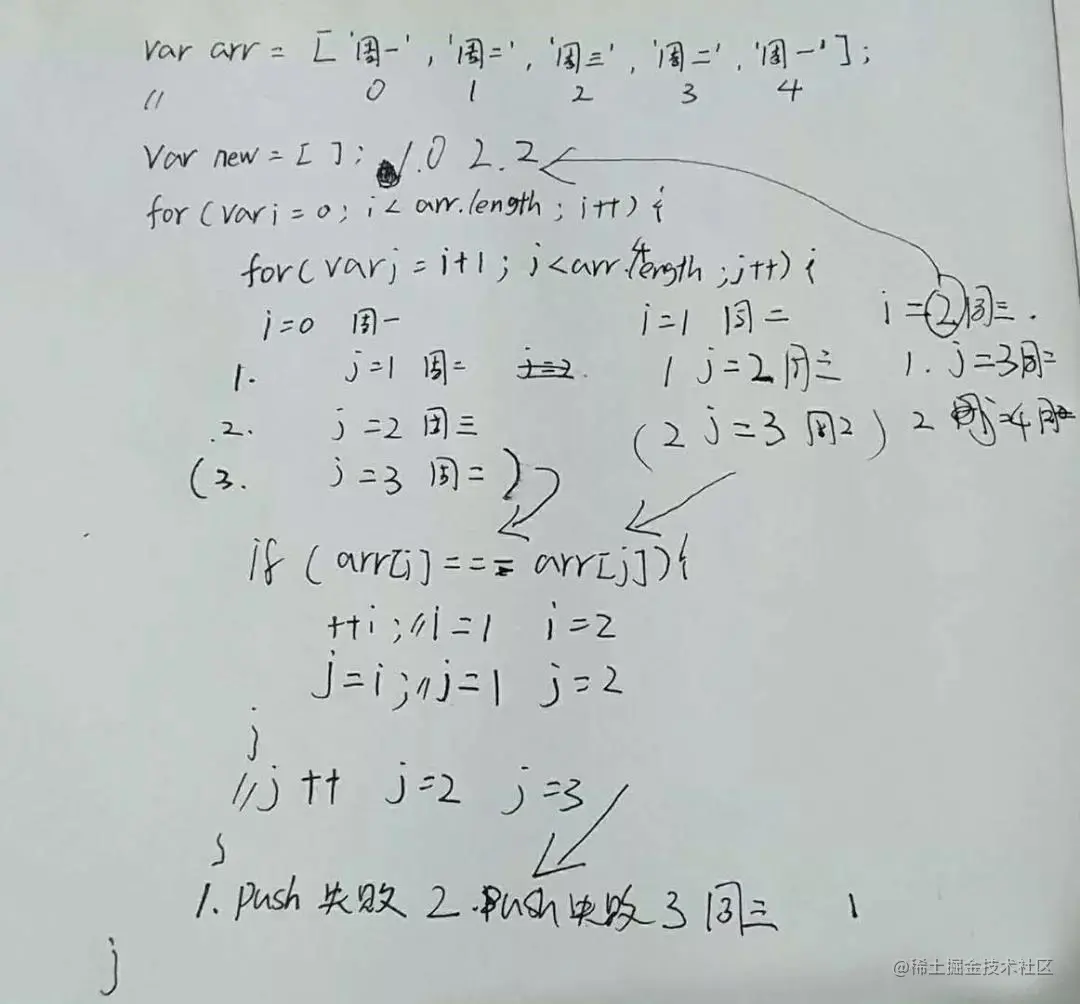 var arr = ['周一', '周二', '周三', '周二', '周一'];
// 0 1 2 3 4
Var new = [ ]; 1.0 2.2
for (var i = 0; i < arr.length; i++) {
for (var j = i+1; j < arr.length; j++) {
4
i=0 周一 i=1 周二 i=2周三.
1. j=1 周二 j=2. 1 j=2 周三 1. j=3周二
.2. j=2 周三 (2 j=3 周2) 2 j=4周
(3. j=3 周二)
if (arr[i] === arr[j]){
++i; //i=1 i=2
j=i; //j=1 j=2
}
//j++ j=2 j=3
}
1. push 失败 2. push 失败 3 周三 1
}
@稀土掘金技术社区